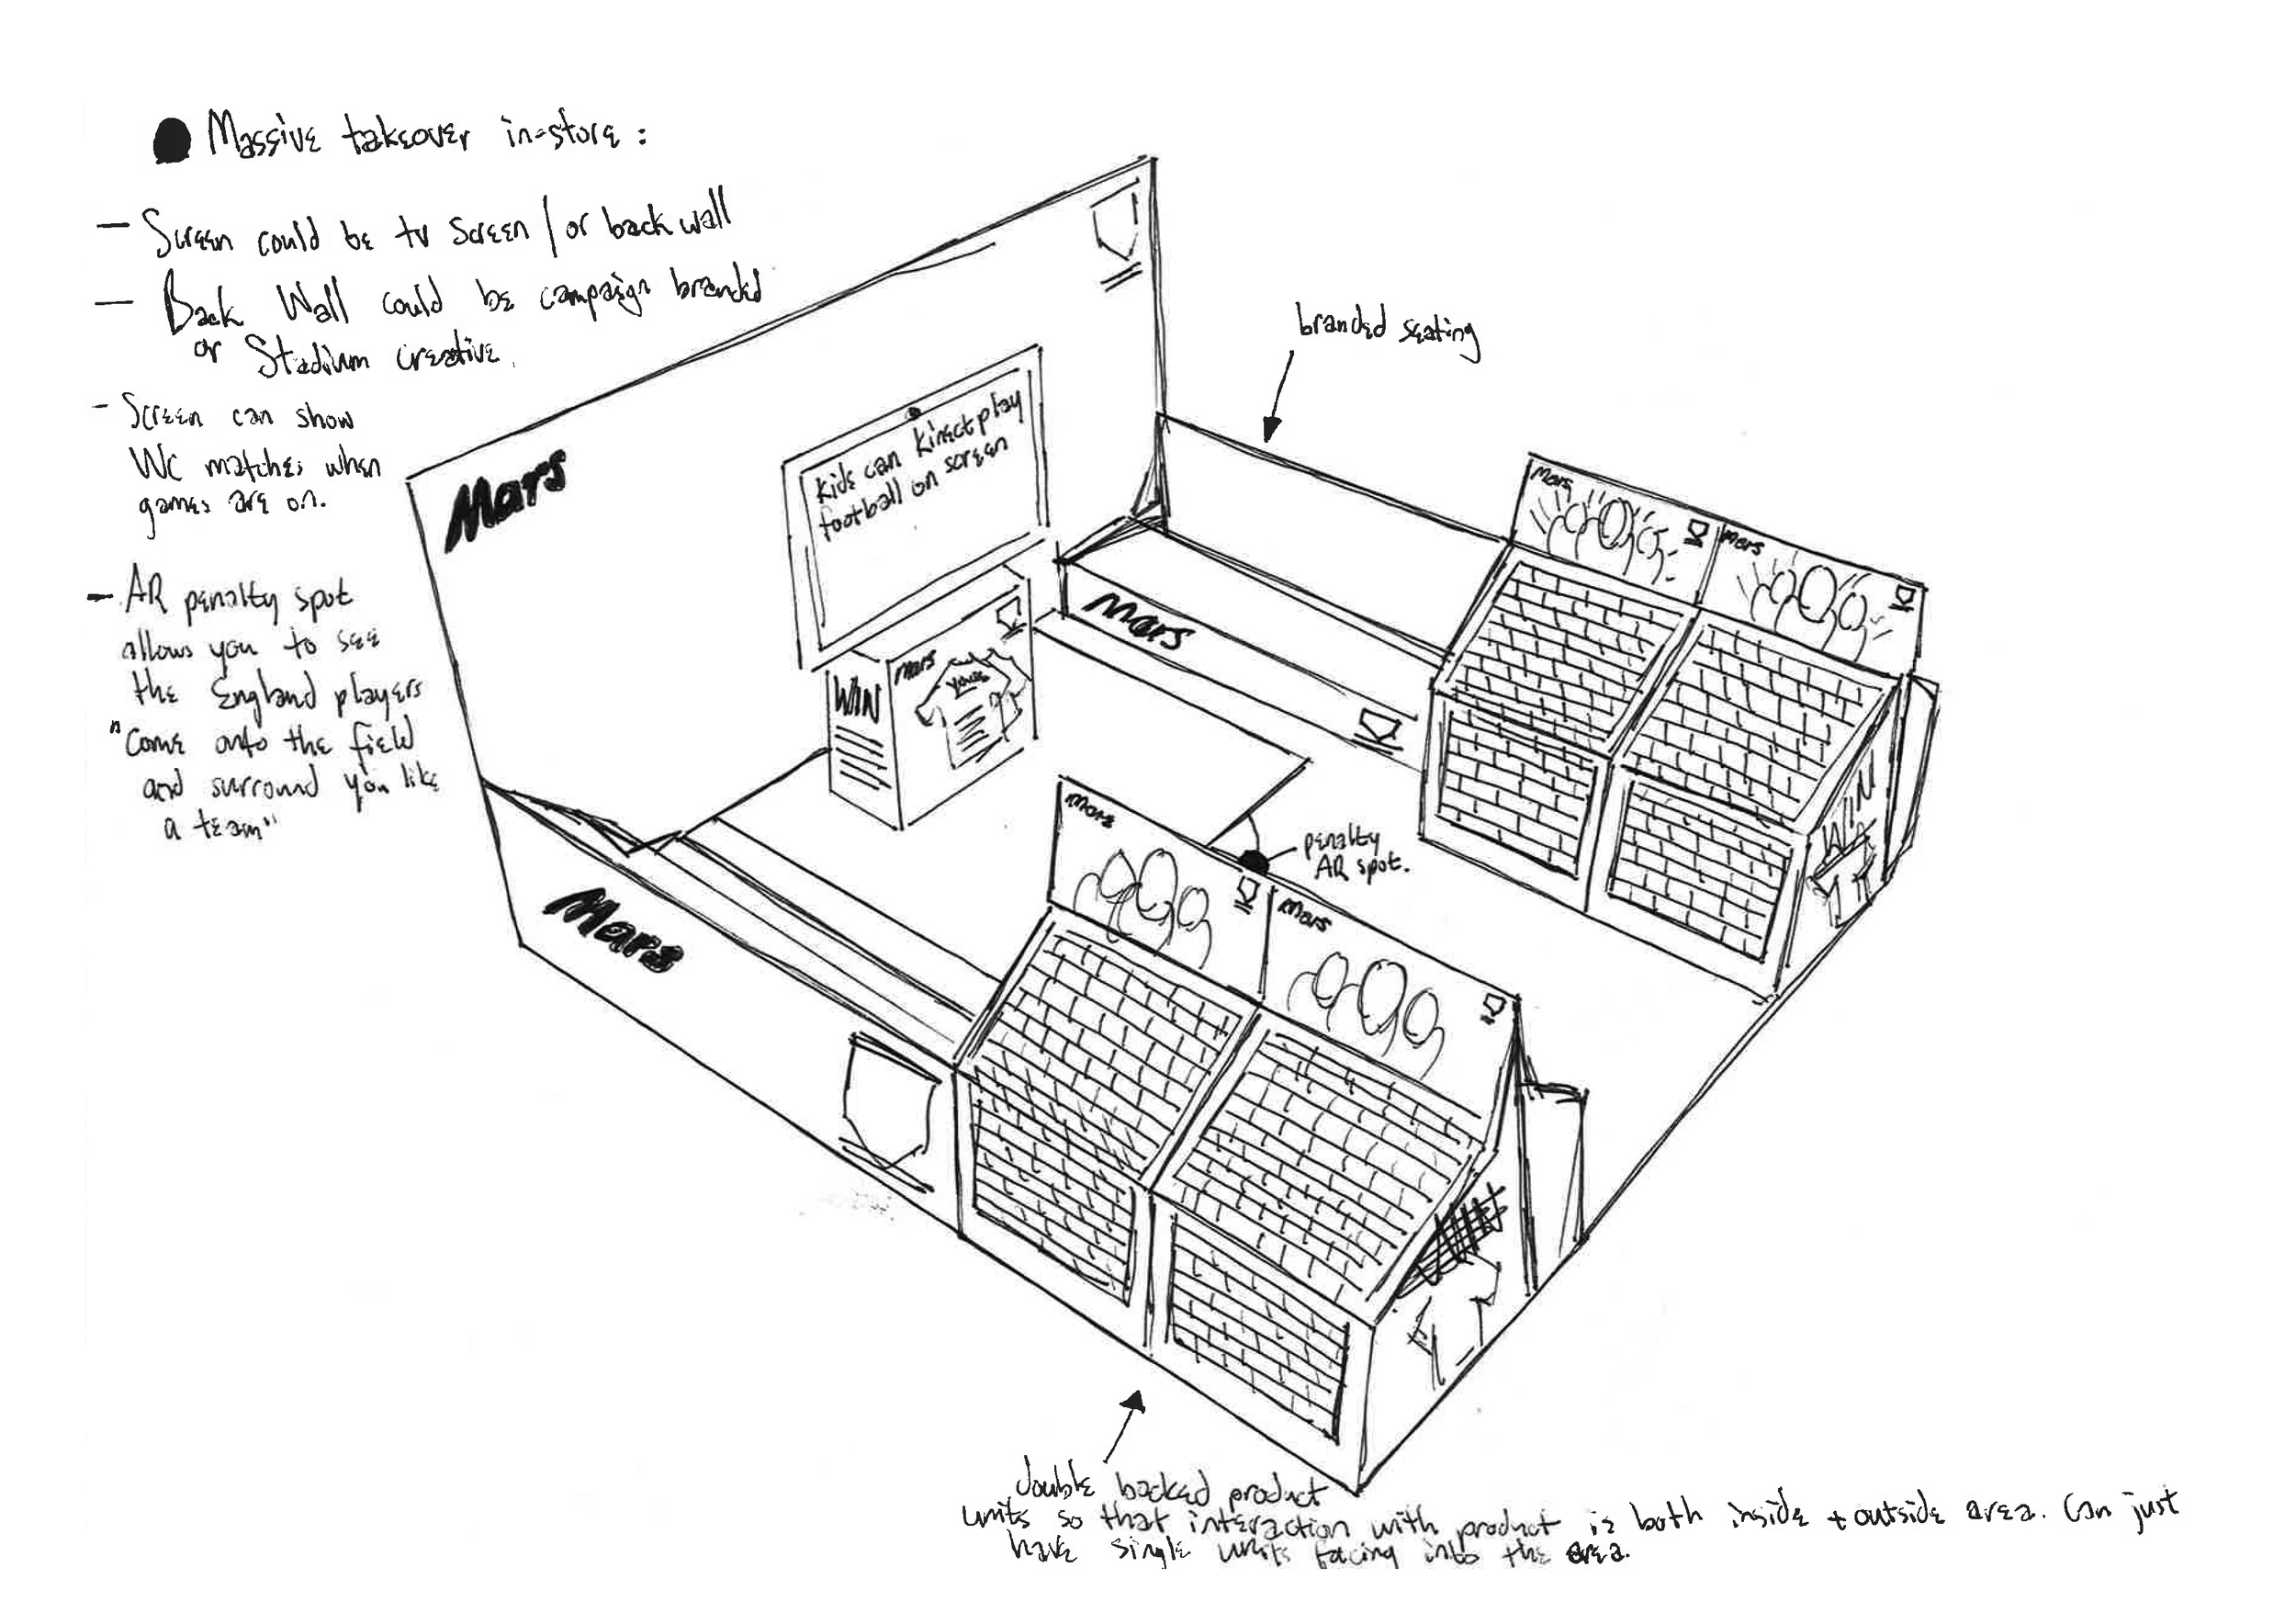 Massive takeover in-store:
– Screen could be tv screen / or back wall
– Back Wall could be campaign branded
or Stadium creative.
- Screen can show
WC matches when
games are on.
- AR penalty spot
allows you to see
the England players
"Come onto the field
and surround you like
a team"
branded seating
Mars
kids can kinect play
football on screen
Mars
WIN
Mars
YOURS
Mars
Mars
Mars
WIN
penalty
AR spot.
Mars
Mars
Mars
double backed product
units so that interaction with product is both inside + outside area. Can just
have single units facing into the area.